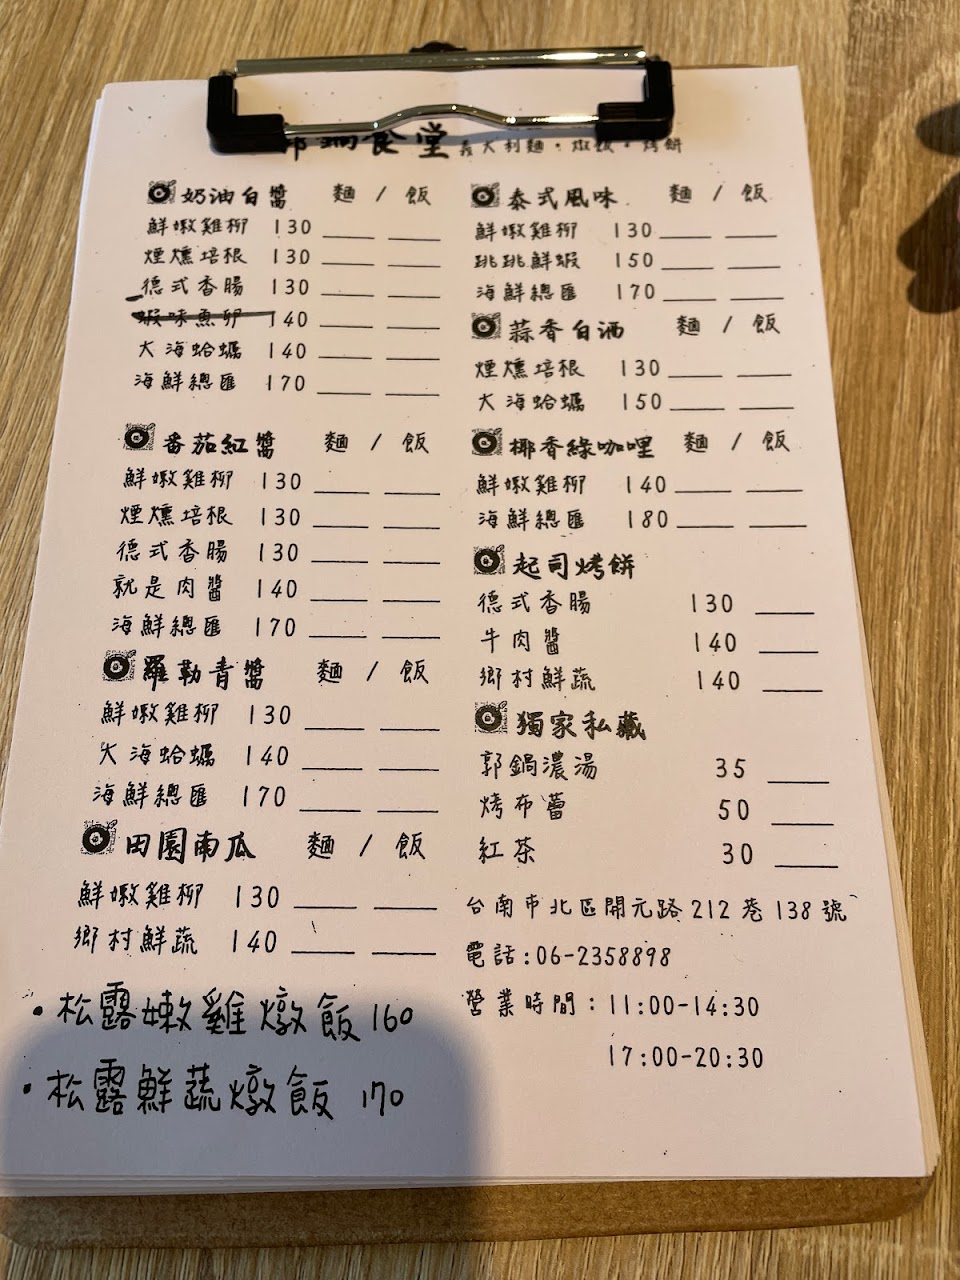 郭鍋食堂 義大利麵・燉飯・烤餅
奶油白醬 麵 / 飯
鮮嫩雞柳 130
煙燻培根 130
德式香腸 130
蝦味魚卵 140
大海蛤蠣 140
海鮮總匯 170
番茄紅醬 麵 / 飯
鮮嫩雞柳 130
煙燻培根 130
德式香腸 130
就是肉醬 140
海鮮總匯 170
羅勒青醬 麵 / 飯
鮮嫩雞柳 130
大海蛤蠣 140
海鮮總匯 170
田園南瓜 麵 / 飯
鮮嫩雞柳 130
鄉村鮮蔬 140
・松露嫩雞燉飯 160
・松露鮮蔬燉飯 170
泰式風味 麵 / 飯
鮮嫩雞柳 130
跳跳鮮蝦 150
海鮮總匯 170
蒜香白酒 麵 / 飯
煙燻培根 130
大海蛤蠣 150
椰香綠咖哩 麵 / 飯
鮮嫩雞柳 140
海鮮總匯 180
起司烤餅
德式香腸 130
牛肉醬 140
鄉村鮮蔬 140
獨家私藏
郭鍋濃湯 35
烤布蕾 50
紅茶 30
台南市北區開元路212巷138號
電話:06-2358898
營業時間:11:00-14:30
17:00-20:30